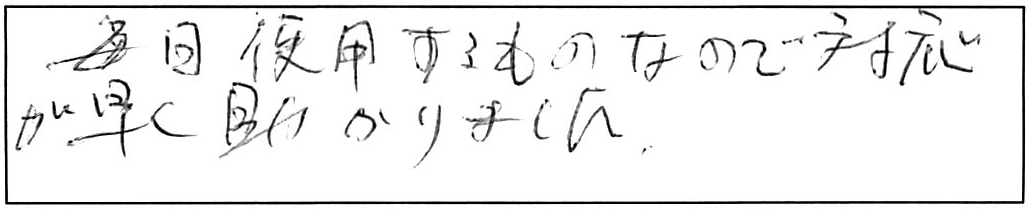 毎回使用するものなので対応
が早く助かりました。